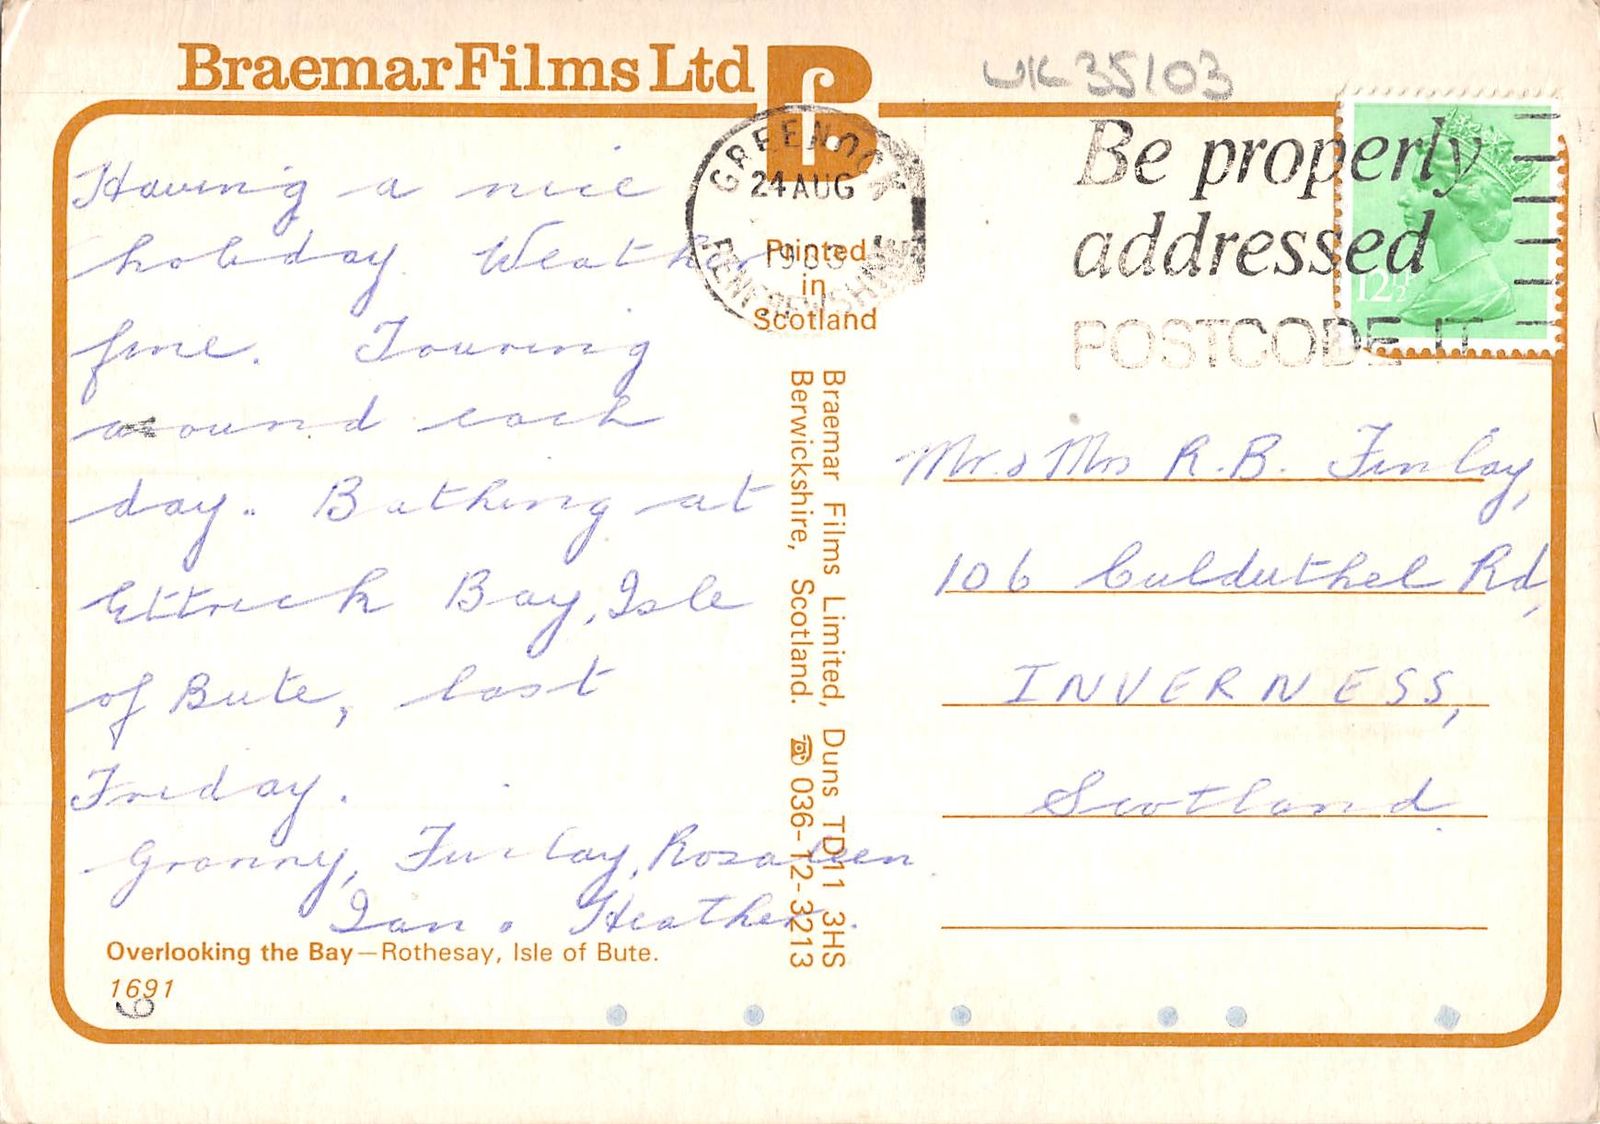 Braemar Films Ltd
UK35103
GREENOCK
24 AUG
RENFREWSHIRE
Be properly
addressed
POSTCODE IT
12½
Printed
in
Scotland
Having a nice
holiday. Weather
fine. Touring
around each
day. Bathing at
Ettrick Bay, Isle
of Bute, last
Friday.
Granny, Finlay, Rosaleen
Ian & Heather.
Overlooking the Bay—Rothesay, Isle of Bute.
1691
6
Braemar Films Limited, Duns TD11 3HS
Berwickshire, Scotland. ☎ 036-12-3213
Mr. & Mrs R.B. Finlay,
106 Culduthel Rd,
INVERNESS,
Scotland.